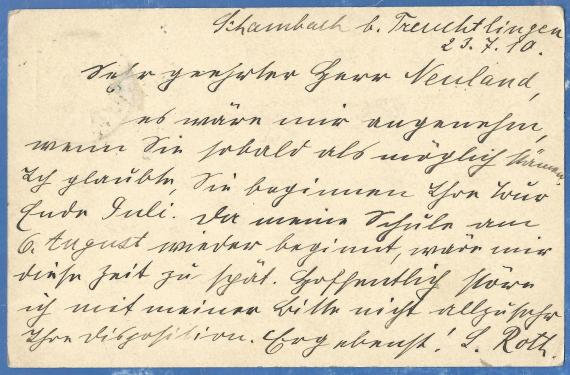 Schambach b. Treuchtlingen
23.7.10.
Sehr geehrter Herr Neuland,
es wäre mir angenehm,
wenn Sie sobald als möglich kämen.
Ich glaubte, Sie beginnen Ihre Tour
Ende Juli. Da meine Schule am
6. August wieder beginnt, wäre mir
diese Zeit zu spät. Hoffentlich störe
ich mit meiner Bitte nicht allzusehr
Ihre Disposition. Ergebenst! L. Roth.